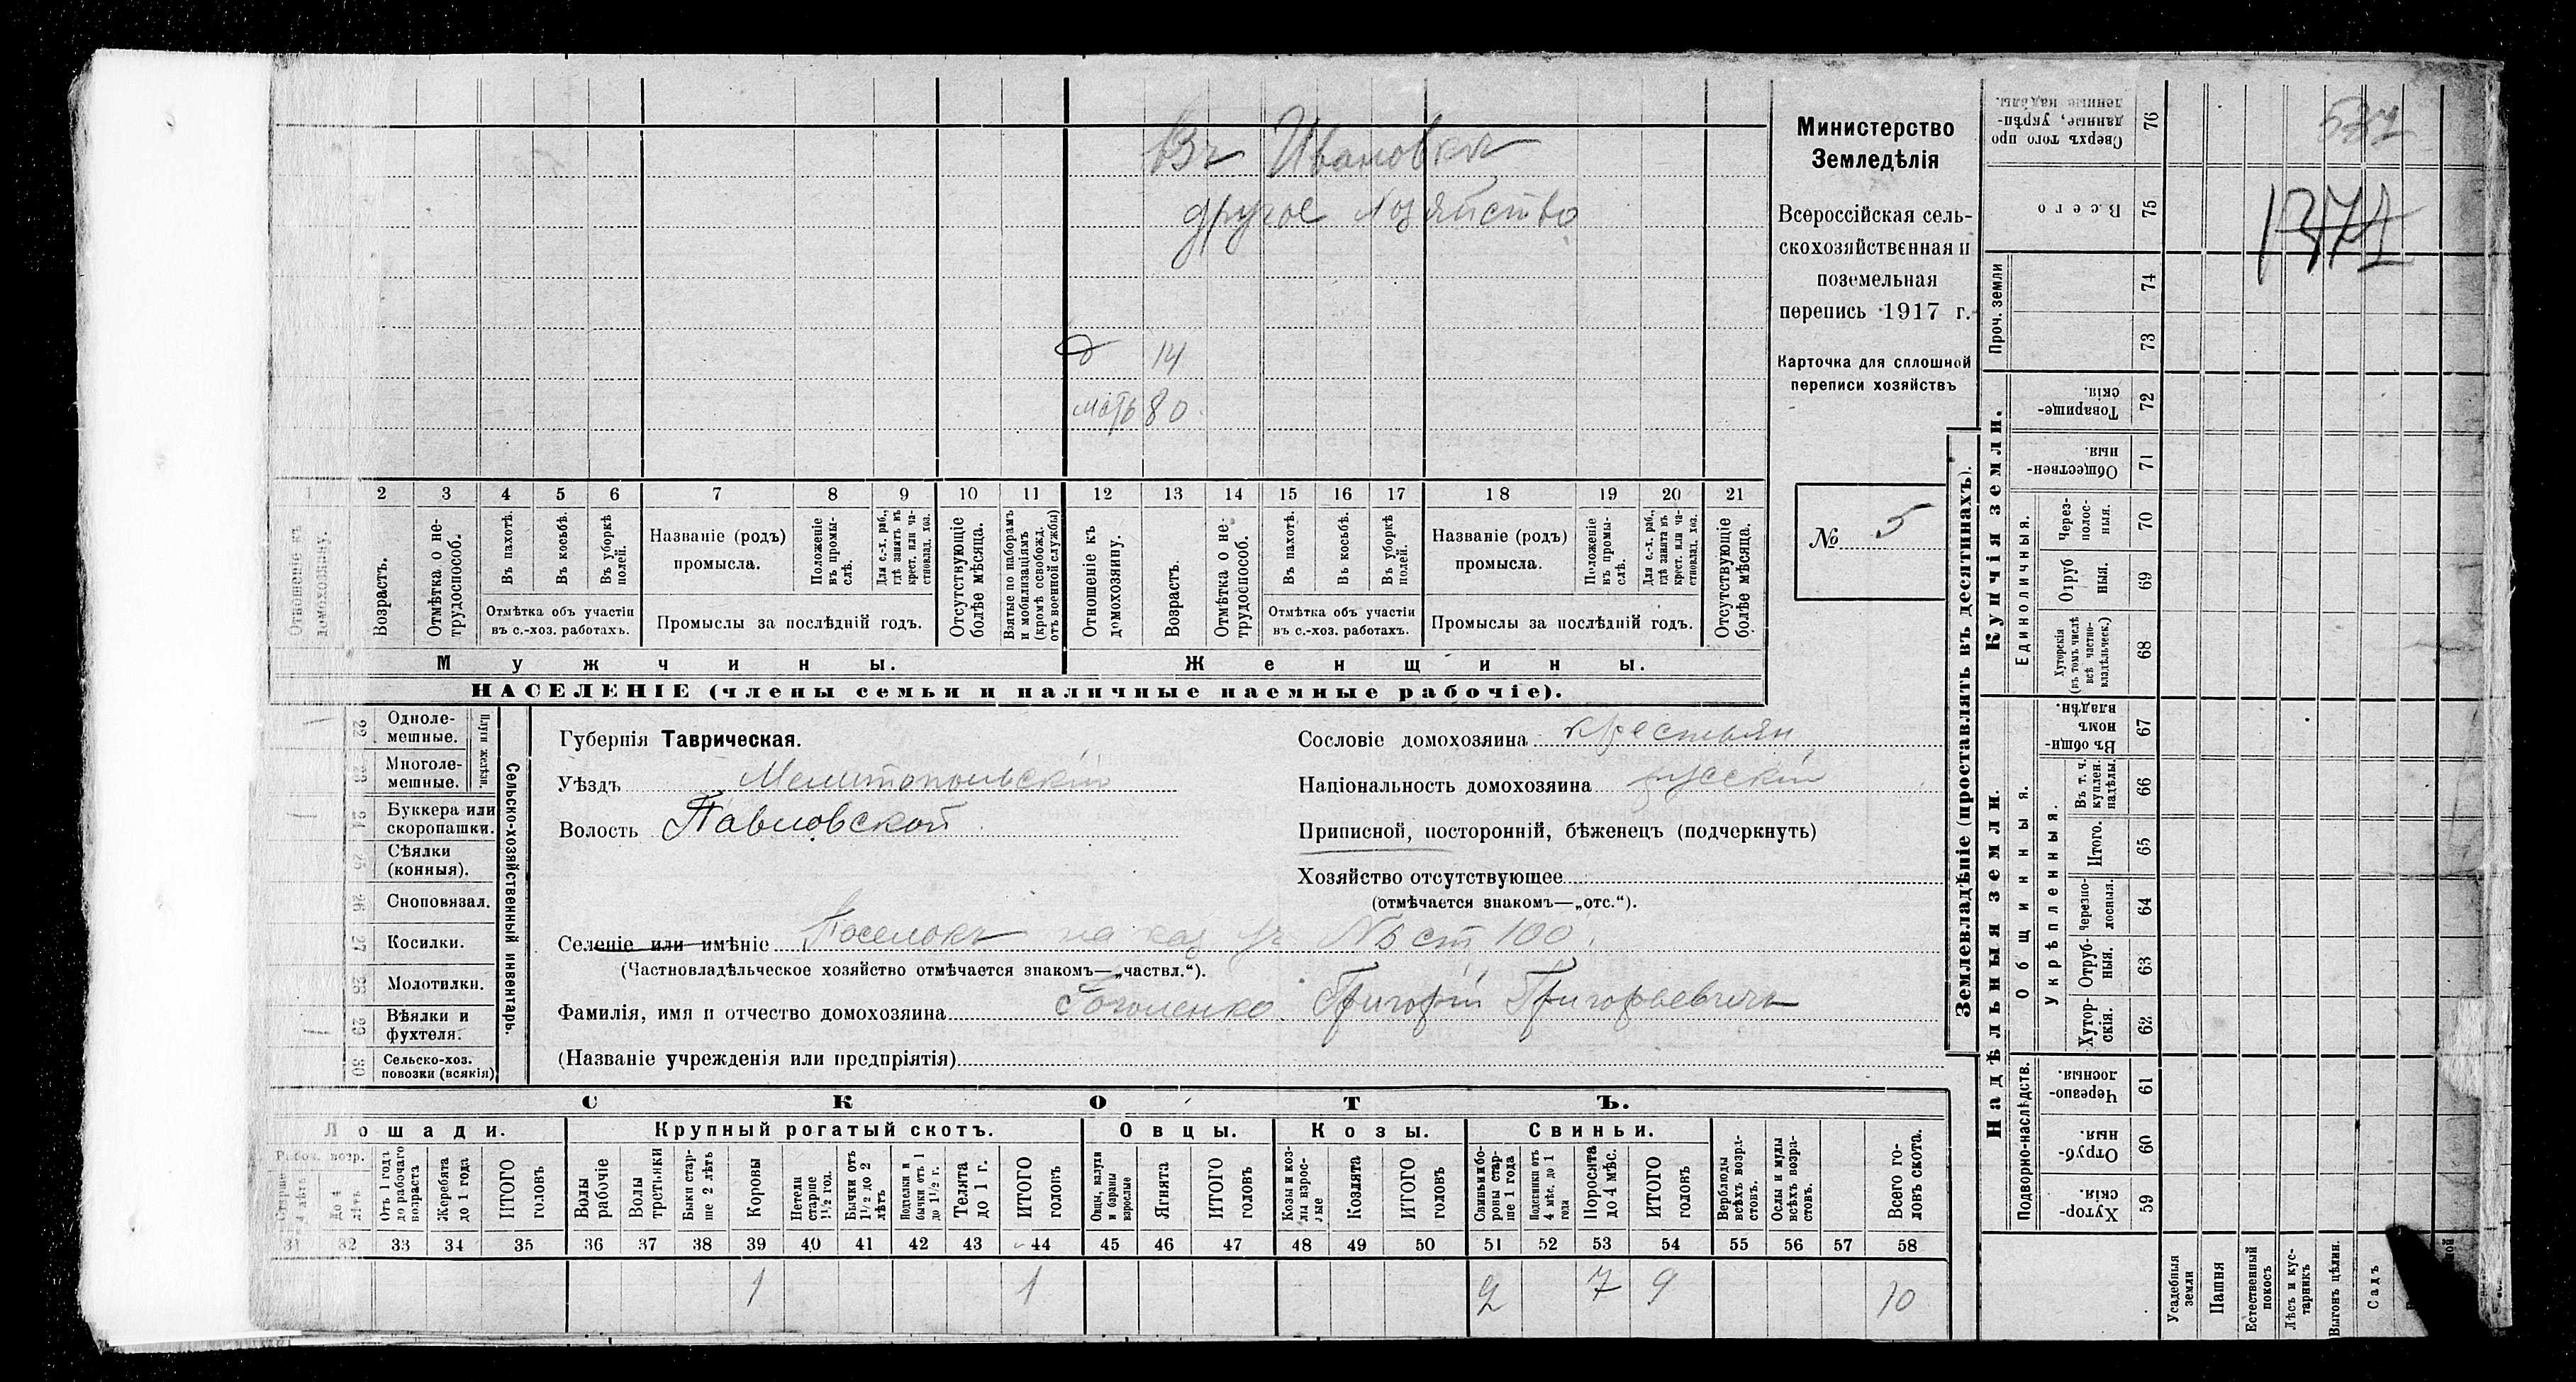 Въ Ивановкѣ
другое хозяйство
д 14
мать 80
1 2 3 4 5 6 7 8 9 10 11 12 13 14 15 16 17 18 19 20 21
Отношеніе къ домохозяину.
Возрастъ.
Отмѣтка о не-трудоспособ.
Въ пахотѣ.
Въ косьбѣ.
Въ уборкѣ полей.
Отмѣтка объ участіи въ с.-хоз. работахъ.
Названіе (родъ) промысла.
Положеніе въ промы-слѣ.
Для с.-х. раб., гдѣ занятъ въ крест. или ча-стновлад. хоз.
Промыслы за послѣдній годъ.
Отсутствующіе болѣе мѣсяца.
Взятые по наборамъ и мобилизаціямъ (кромѣ освобожд. отъ военной службы)
Отношеніе къ домохозяину.
Возрастъ.
Отмѣтка о не-трудоспособ.
Въ пахотѣ.
Въ косьбѣ.
Въ уборкѣ полей.
Отмѣтка объ участіи въ с.-хоз. работахъ.
Названіе (родъ) промысла.
Положеніе въ промы-слѣ.
Для с.-х. раб., гдѣ занята въ крест. или ча-стновлад. хоз.
Промыслы за послѣдній годъ.
Отсутствующіе болѣе мѣсяца.
Мужчины. Женщины.
НАСЕЛЕНІЕ (члены семьи и наличные наемные рабочіе).
Министерство
Земледѣлія
Всероссійская сель-
скохозяйственная и
поземельная
перепись 1917 г.
Карточка для сплошной
переписи хозяйствъ
№ 5
22 Одноле-мешные.
23 Многоле-мешные.
Плуги желѣзн.
24 Буккера или скоропашки.
25 Сѣялки (конныя).
26 Сноповязал.
27 Косилки.
28 Молотилки.
29 Вѣялки и фухтеля.
30 Сельско-хоз. повозки (всякія)
Сельско-хозяйственный инвентарь.
Губернія Таврическая.
Уѣздъ Мелитопольскій
Волость Павловской
Сословіе домохозяина крестьян
Національность домохозяина русскій
Приписной, посторонній, бѣженецъ (подчеркнуть)
Хозяйство отсутствующее
(отмѣчается знакомъ—„отс.“).
Селеніе или имѣніе Поселокъ на каз уч № ст 100.
(Частновладѣльческое хозяйство отмѣчается знакомъ—„частвл.“).
Фамилія, имя и отчество домохозяина Гоголенко Григорій Григорьевичъ
(Названіе учрежденія или предпріятія)
СКОТЪ.
Лошади. Крупный рогатый скотъ. Овцы. Козы. Свиньи.
Рабоч. возр.
Старше 4 лѣтъ
до 4 лѣтъ
Отъ 1 года до рабочаго возраста
Жеребята до 1 года
ИТОГО головъ
Волы рабочіе
Волы третьяки
Быки стар-ше 2 лѣтъ
Коровы
Нетели старше 1½ год.
Бычки отъ 1½ до 2 лѣтъ
Подтелки и бычки отъ 1 до 1½ г.
Телята до 1 г.
ИТОГО головъ
Овцы, валухи и бараны взрослые
Ягнята
ИТОГО головъ
Козы и коз-лы взрос-лые
Козлята
ИТОГО головъ
Свиньи и бо-ровы стар-ше 1 года
Подсвинки отъ 4 мѣс. до 1 года
Поросята до 4 мѣс.
ИТОГО головъ
Верблюды всѣхъ возра-стовъ.
Ослы и мулы всѣхъ возра-стовъ.
Всего го-ловъ скота.
31 32 33 34 35 36 37 38 39 40 41 42 43 44 45 46 47 48 49 50 51 52 53 54 55 56 57 58
1 1 2 7 9 10
Землевладѣніе (проставлять въ десятинахъ).
Надѣльныя земли. Купчія земли.
Проч. земли
Подворно-наслѣдств.
Общинныя.
Укрѣпленныя.
Единоличныя.
76 Сверхъ того про-данные, укрѣп-ленные надѣлы.
75 Всего
74
73
72 Товарище-скія.
71 Обществен-ныя.
70 Через-полос-ныя.
69 Отруб-ныя.
68 Хуторскія (въ томъ числѣ всѣ частно-владѣльческ.)
67 Въ общи-номъ владѣн.
66 Въ т. ч. куплен. надѣлы.
65 Итого.
64 Черезпо-лосныя.
63 Отруб-ныя.
62 Хутор-скія.
61 Черезпо-лосныя.
60 Отруб-ныя.
59 Хутор-скія.
Усадебныя земли
Пашня
Естественный покосъ
Лѣсъ и кус-тарникъ
Выгонъ цѣлин.
Садъ